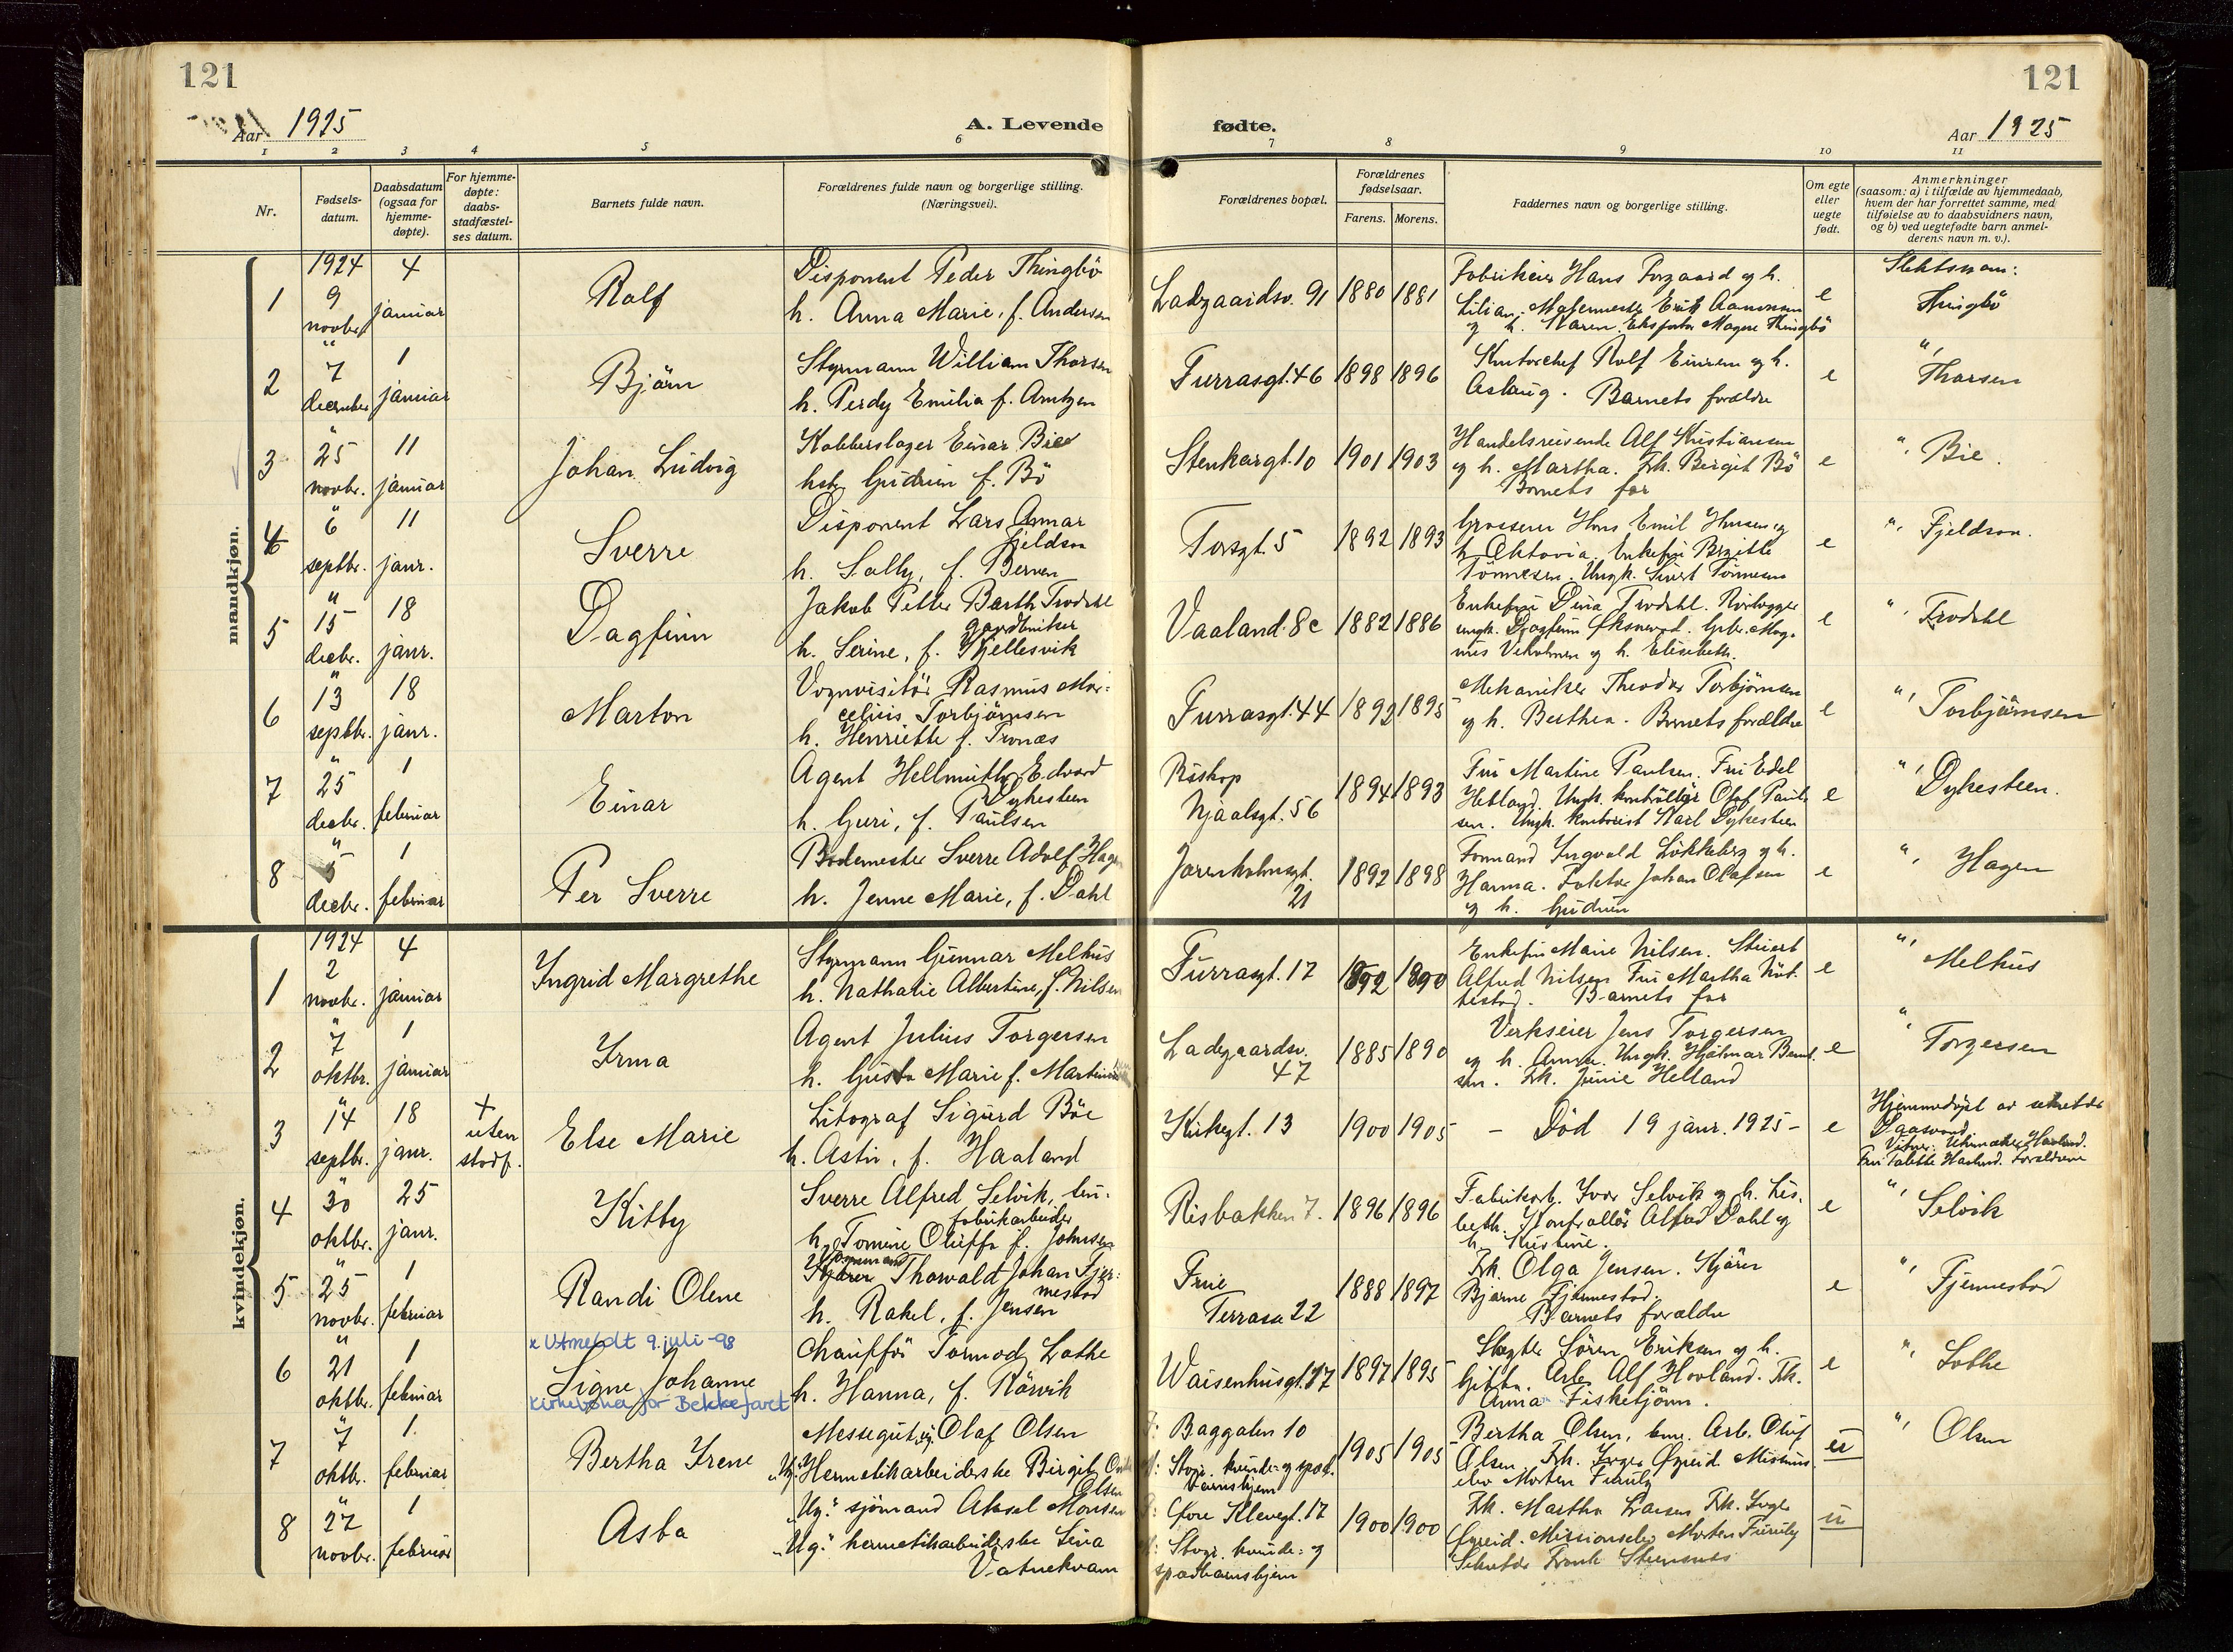 121
Aar 1925
A. Levende
1 2 3 4 5 6
Nr.
Fødsels-
datum.
Daabsdatum
(ogsaa for
hjemme-
døpte).
For hjemme-
døpte:
daabs-
stadfæstel-
ses datum.
Barnets fulde navn.
Forældrenes fulde navn og borgerlige stilling.
(Næringsvei).
121
fødte.
Aar 1925
7 8 9 10 11
Forældrenes bopæl.
Forældrenes
fødselsaar.
Farens. Morens.
Faddernes navn og borgerlige stilling.
Om egte
eller
uegte
født.
Anmerkninger
(saasom: a) i tilfælde av hjemmedaab,
hvem der har forrettet samme, med
tilføielse av to daabsvidners navn,
og b) ved uegtefødte barn anmel-
derens navn m. v.).
mandkjøn.
1
1924
9
novbr
4
januar
Rolf
Disponent Peder Thingbö
h. Anna Marie, f. Andersen
Ladegaardsv. 91
1880 1881
Fabrikeier Hans Torgaard og h.
Lilian. Erik Aamonsen
og h. Karen. Magne Thingbö
e
Slektsnavn:
Thingbö
2
" 7
december
1
januar
Björn
Styrmann William Thorsen
h. Perdy Emilia f. Arntzen
Furrasgt. 46
1898 1896
Kontorchef Rolf Einersen og h.
Aslaug. Barnets forældre
e
" Thorsen
3
" 25
novbr.
11
januar
Johan Ludvig
Kobberslager Einar Bie
hst. Gudrun f. Bö
Stenkargt. 10
1901 1903
Handelsreisende Alf Kristiansen
og h. Martha. Frk. Birgit Bö
Barnets far
e
" Bie.
4
" 6
septbr.
11
janr.
Sverre
Disponent Lars Annar
Fjeldson
h. Sally, f. Bernen
Torgt. 5
1892 1893
Grosserer Hans Emil Hansen og
h. Oktavia. Enkefru Birgitte
Tönnesen. Ungk. Sivert Tönnesen
e
" Fjeldson.
5
" 15
decbr.
18
janr.
Dagfinn
Jakob Petter Barth Trodahl
gaardbruker
h. Serine, f. Kjellesvik
Vaaland. 8c
1882 1886
Enkefru Dina Trodahl. Rörlægger
ungk. Dagfinn Gbr. Mag-
nus og h. Elisabeth.
e
" Trodahl
6
" 13
septbr.
18
janr.
Marton
Vognvisitör Rasmus Mar-
celius Torbjörnsen
h. Henriette f. Tronæs
Furrasgt. 44
1892 1895
Mekaniker Theodor Torbjörnsen
og h. Berthea. Barnets forældre
e
" Torbjörnsen
7
" 25
decbr.
1
februar
Einar
Agent Hellmuth Edvard
Dykesteen
h. Guri, f. Paulsen
Biskop
Njaalsgt. 56
1894 1893
Fru Martine Paulsen. Fru Edel
Hetland. Ungk. kontrollör Olaf Paul-
sen. Ungk. kontorist Karl Dykesteen
e
" Dykesteen.
8
" 5
decbr.
1
februar
Per Sverre
Bademester Sverre Adolf Hagen
h. Jenne Marie, f. Dahl
Jorenholmgt.
21
1892 1898
Formand Ingvald Lökkeberg og h.
Hanna. Faktor Johan Olafsen
og h. Gudrun
e
" Hagen
kvindekjøn.
1
1924
2
novbr.
4
januar
Ingrid Margrethe
Styrmann Gunnar Melhus
h. Nathalie Albertine, f. Nilsen
Furrasgt. 17
1892 1890
Enkefru Marie Nilsen. Stuert
Alfred Nilsen Fru Martha Nöt-
testad. Barnets far
e
" Melhus
2
" 7
oktbr.
1
januar
Irma
Agent Julius Torgersen
h. Gusta Marie f. Martinsen
Ladegaardsv.
47
1885 1890
Verkseier Jens Torgersen
og h. Anna. Ungk. Hjalmar Bernt-
sen. Frk. Junie Helland
e
" Torgersen
3
" 14
septbr.
18
janr.
+
uten
stadf.
Else Marie
Litograf Sigurd Böe
h. Astri, f. Haaland
Kirkegt. 13
1900 1905
- Död 19 janr. 1925 -
e
Hjemmedöpt av sekretær
Daasvand.
Vidner: Urmaker Haaland.
Fru Valette Haaland. Forældrene
4
" 30
oktbr.
25
janr.
Kitty
Sverre Alfred Selvik, bru-
fabrikarbeider
h. Tomine Oluffa f. Johnsen
Risbakken 7.
1896 1896
Fabrikarb. Ivar Selvik og h. Lis-
beth. Kontrollör Alfred Dahl og
h. Kristine.
e
" Selvik
5
" 25
novbr.
1
februar
Randi Olene
Formand
Thorvald Johan Fjer-
mestad
h. Rakel, f. Jensen
Frue
Terrasse 22
1888 1897
Frk. Olga Jensen. Skjörer
Bjarne Fjermestad.
Barnets forældre
e
" Fjermestad
6
" 21
oktbr.
1
februar
x Utmeldt 9. juli -98
Signe Johanne
Kirkeverket for Bekkefaret
Chaufför Tormod Lothe
h. Hanna, f. Rörvik
Waisenhusgt. 17
1897 1895
Slagter Sören Eriksen og h.
Gitta. Arb. Alf Hovland. Frk.
Anna Fisketjönn.
e
" Lothe
7
" 7
oktbr.
1
februar
Bertha Irene
Messegut Olaf Olsen
"Ug." Hermetikarbeiderske Birgit
Olsen
F: Baggaten 10
M: Stvgr. kvinde- og spæd-
barnshjem
1905 1905
Bertha Olsen, Arb. Oluf
Olsen. Frk. Inger Öpreid. Misjons-
elev Morten Furuly
u
" Olsen
8
" 27
novbr.
1
februar
Asba
"Ug." sjömand Aksel Monsen
"Ug." hermetikarbeiderske Lina
Vatnekvam
F: Övre Klevegt. 17
M: Stvgr. kvinde- og
spædbarnshjem
1900 1900
Frk. Martha Larsen Frk. Inge
Öpreid. Missionselev Morten Furuly
Sekretær Frank Stensnes
u